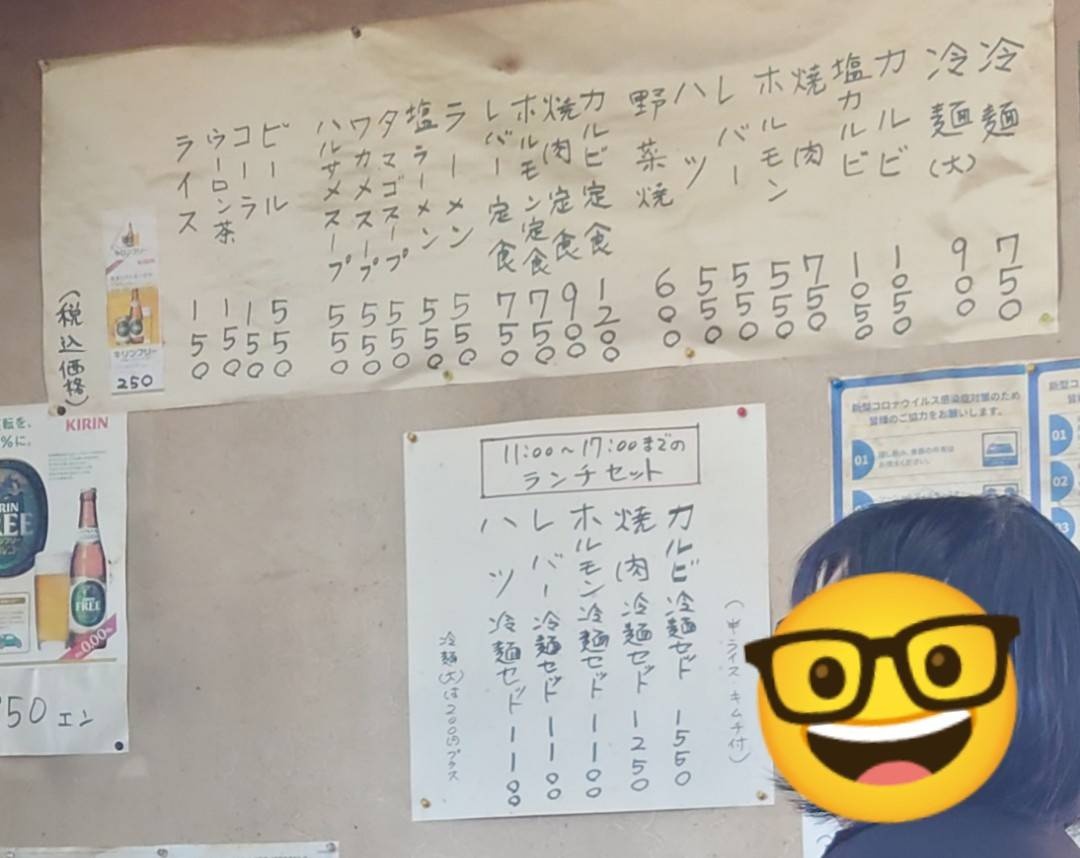 冷麺 750
冷麺(大) 900
カルビ 1050
塩カルビ 1050
焼肉 750
ホルモン 550
レバー 550
ハツ 550
野菜焼 600
カルビ定食 1200
焼肉定食 900
ホルモン定食 750
レバー定食 750
ラーメン 550
塩ラーメン 550
タマゴスープ 550
ワカメスープ 550
ハルサメスープ 550
ビール 550
コーラ 150
ウーロン茶 150
ライス 150
キリンフリー
250
(税込価格)
KIRIN
FREE
0.00%
50エン
11:00〜17:00までの
ランチセット
(半ライス キムチ付)
カルビ冷麺セット 1550
焼肉冷麺セット 1250
ホルモン冷麺セット 1100
レバー冷麺セット 1100
ハツ冷麺セット 1100
冷麺(大)は200円プラス
新型コロナウイルス感染症対策のため
皆様のご協力をお願いします。
01
新型コ
01
02